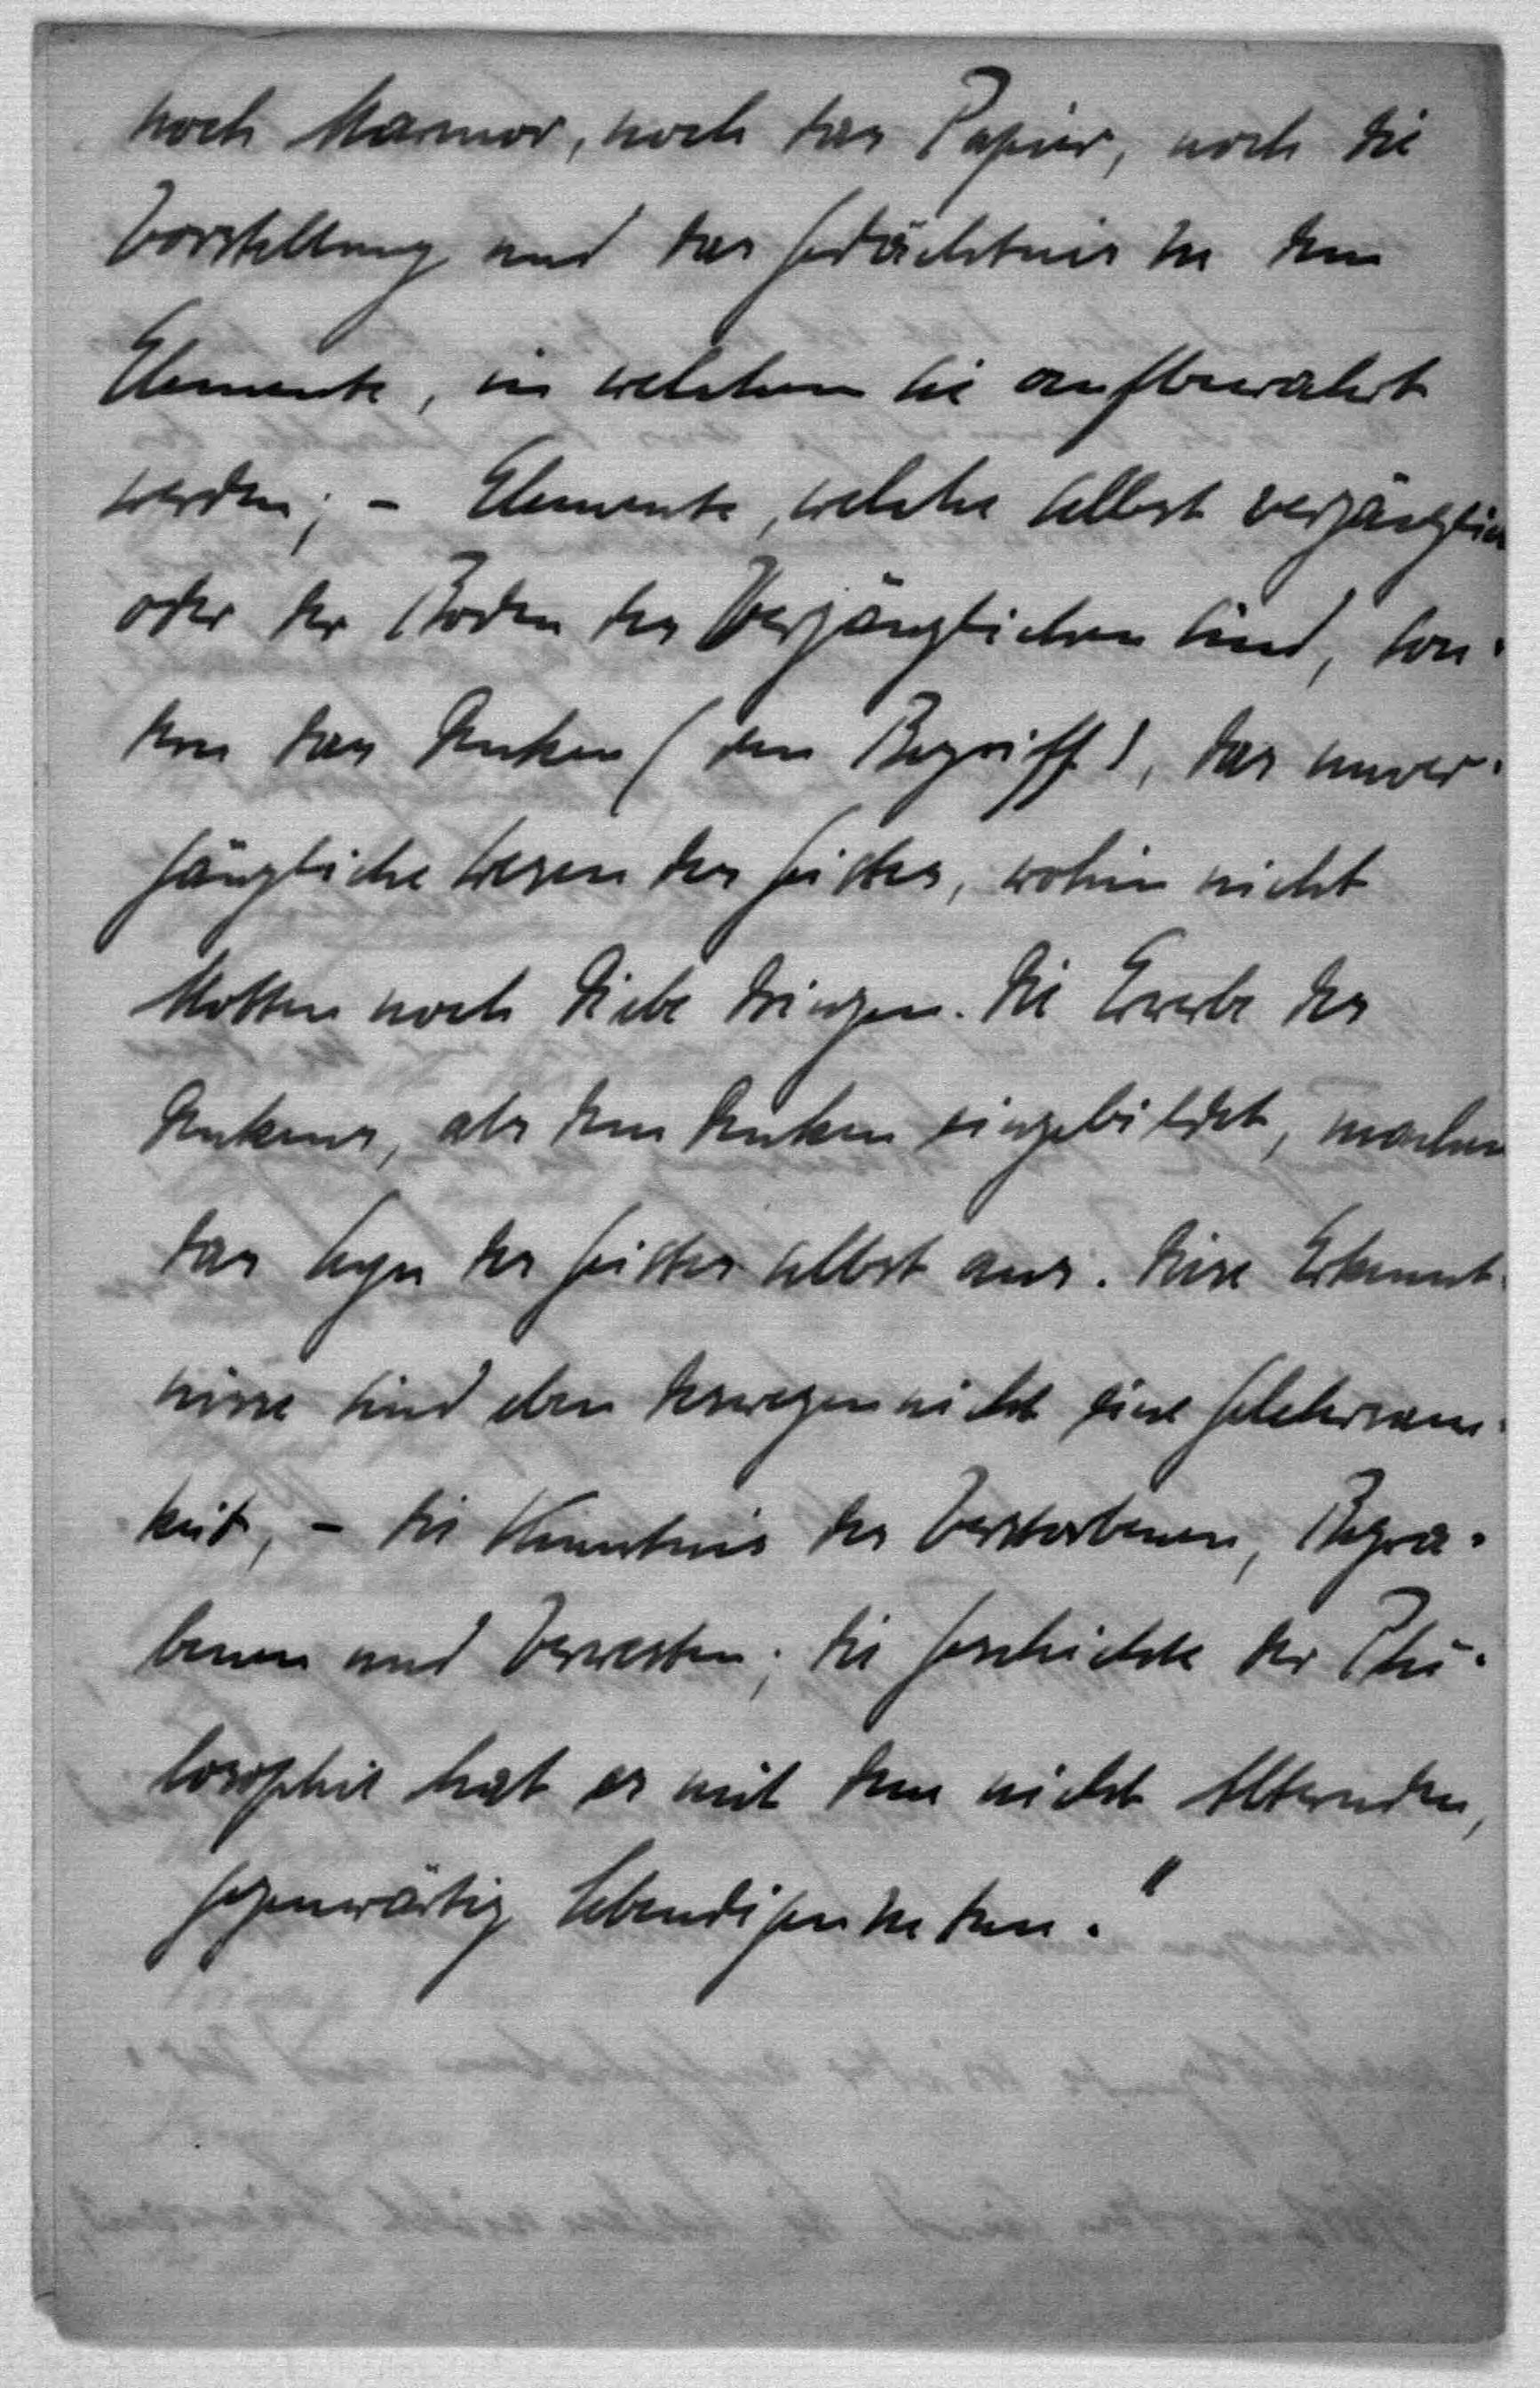 noch Marmor, noch das Papier, noch die
Vorstellung und das Gedächtnis zu dem
Elemente, in welchem sie aufbewahrt
werden; – Elemente, welche selbst vergänglich
oder der Boden des Vergänglichen sind, son-
dern das Denken (den Begriff), das unver-
gängliche Wesen des Geistes, wohin nicht
Motten noch Diebe dringen. Die Erwerbe des
Denkens, als dem Denken eingebildet, machen
das Seyn des Geistes selbst aus. Diese Erkennt-
nisse sind eben deswegen nicht eine Gelehrsam-
keit, – die Kenntnis des Verstorbenen, Begra-
benen und Verwesten; die Geschichte der Phi-
losophie hat es mit dem nicht Alternden,
gegenwärtig Lebendigen zu tun."